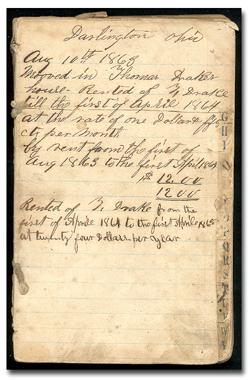 Darlington Ohio
Aug 10th 1863
Mooved in Thomas Drakes
house Rented of T. Drake
till the first of April 1864
at the rate of one Dollar & ff
cts per Month
by rent from the first of
Aug 1863 to the first April 1864
$ 12.00
12 00
Rented of T. Drake from the
first of Aprile 1864 to the first Aprile 1865
at twenty four Dollars per year